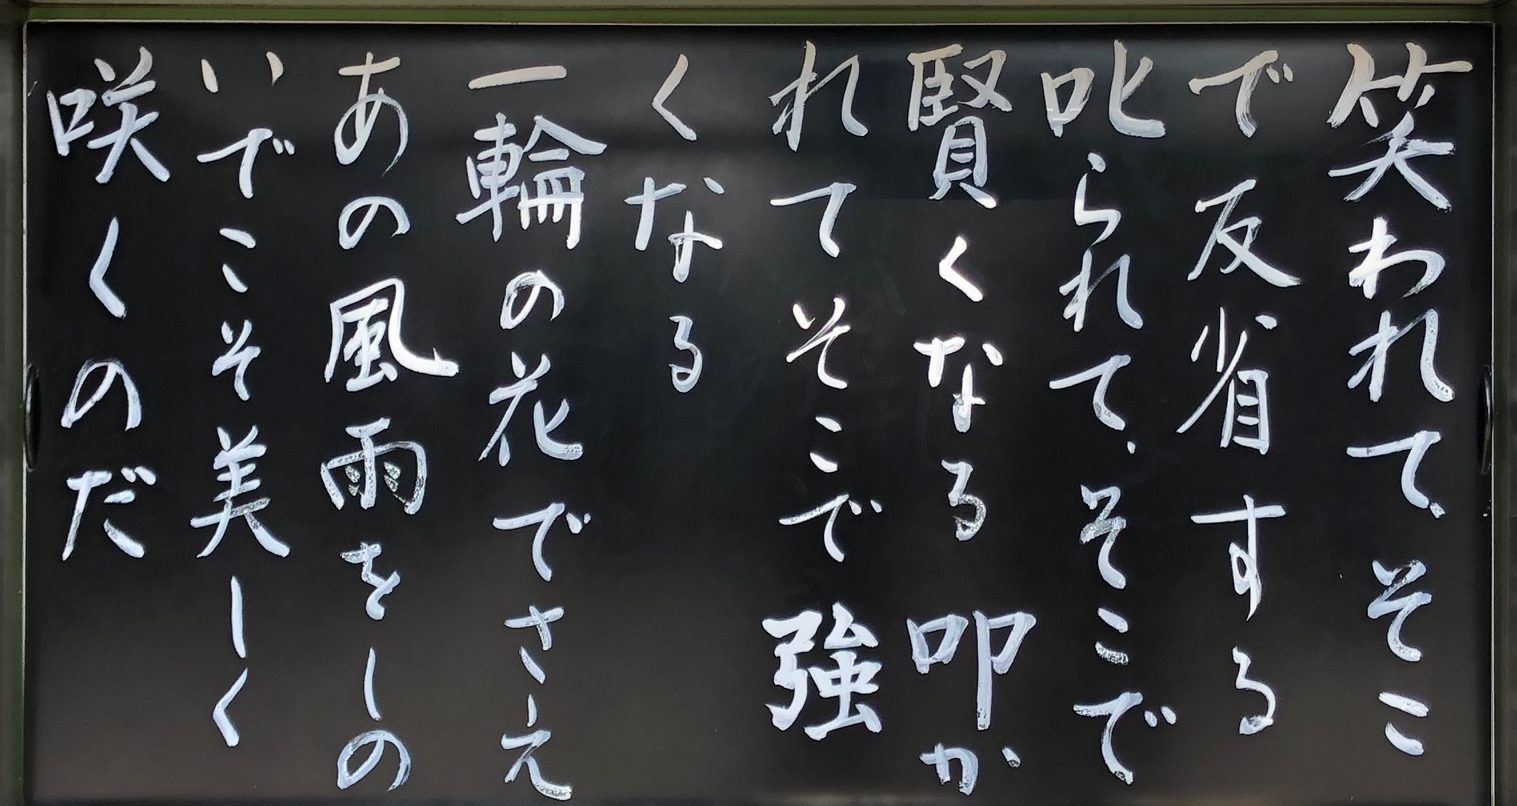 笑われて、そこ
で反省する
叱られて、そこで
賢くなる 叩か
れてそこで強
くなる
一輪の花でさえ
あの風雨をしの
いでこそ美しく
咲くのだ